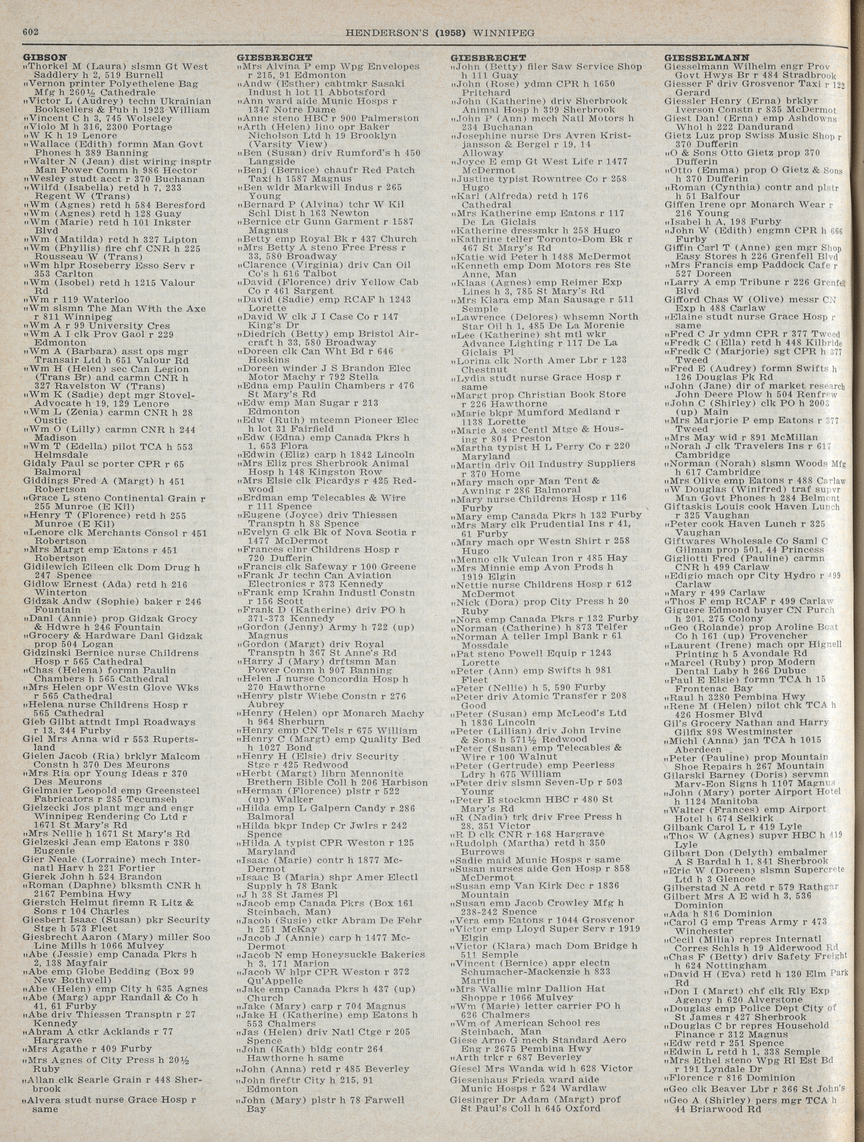 602
HENDERSON'S (1958) WINNIPEG
GIBSON
"Thorkel M (Laura) slsmn Gt West
Saddlery h 2, 519 Burnell
"Vernon printer Polyethelene Bag
Mfg h 260½ Cathedrale
"Victor L (Audrey) techn Ukrainian
Booksellers & Pub h 1923 William
"Vincent C h 3, 745 Wolseley
"Violo M h 316, 2300 Portage
"W K h 19 Lenore
"Wallace (Edith) formn Man Govt
Phones h 389 Banning
"Walter N (Jean) dist wiring insptr
Man Power Comm h 986 Hector
"Wesley studt acct r 370 Buchanan
"Wilfd (Isabella) retd h 7, 233
Regent W (Trans)
"Wm (Agnes) retd h 584 Beresford
"Wm (Agnes) h 128 Guay
"Wm (Marie) retd h 101 Inkster
Blvd
"Wm (Matilda) retd h 327 Lipton
"Wm (Phyllis) fire chf CNR h 225
Rousseau W (Trans)
"Wm hlpr Roseberry Esso Serv r
353 Carlton
"Wm (Isobel) retd h 1215 Valour
Rd
"Wm r 119 Waterloo
"Wm slsmn The Man With the Axe
r 811 Winnipeg
"Wm A r 99 University Cres
"Wm A I clk Prov Gaol r 229
Edmonton
"Wm A (Barbara) asst ops mgr
Transair Ltd h 651 Valour Rd
"Wm H (Helen) sec Can Legion
(Trans Br) and carmn CNR h
327 Ravelston W (Trans)
"Wm K (Sadie) dept mgr Stovel-
Advocate h 19, 129 Lenore
"Wm L (Zenia) carmn CNR h 28
Oustic
"Wm O (Lilly) carmn CNR h 244
Madison
"Wm T (Edella) pilot TCA h 553
Helmsdale
Gidaly Paul sc porter CPR r 65
Balmoral
Giddings Fred A (Margt) h 451
Robertson
"Grace L steno Continental Grain r
255 Munroe (E Kil)
"Henry T (Florence) retd h 255
Munroe (E Kil)
"Lenore clk Merchants Consol r 451
Robertson
"Mrs Margt emp Eatons r 451
Robertson
Gidilewich Eileen clk Dom Drug h
247 Spence
Gidlow Ernest (Ada) retd h 216
Winterton
Gidzak Andw (Sophie) baker r 246
Fountain
"Danl (Annie) prop Gidzak Grocy
& Hdwre h 246 Fountain
"Grocery & Hardware Danl Gidzak
prop 504 Logan
Gidzinski Bernice nurse Childrens
Hosp r 565 Cathedral
"Chas (Helena) formn Paulin
Chambers h 565 Cathedral
"Mrs Helen opr Westn Glove Wks
r 565 Cathedral
"Helena nurse Childrens Hosp r
565 Cathedral
Gieb Gilbt attndt Impl Roadways
r 13, 344 Furby
Giel Mrs Anna wid r 553 Ruperts-
land
Gielen Jacob (Ria) brklyr Malcom
Constn h 370 Des Meurons
"Mrs Ria opr Young Ideas r 370
Des Meurons
Gielmaier Leopold emp Greensteel
Fabricators r 285 Tecumseh
Gielzecki Jos plant mgr and engr
Winnipeg Rendering Co Ltd r
1671 St Mary's Rd
"Mrs Nellie h 1671 St Mary's Rd
Gielzeski Jean emp Eatons r 380
Eugenie
Gier Neale (Lorraine) mech Inter-
natl Harv h 221 Fortier
Gierek John h 524 Brandon
"Roman (Daphne) blksmth CNR h
2167 Pembina Hwy
Gierstch Helmut firemn R Litz &
Sons r 104 Charles
Giesbert Isaac (Susan) pkr Security
Stge h 573 Fleet
Giesbrecht Aaron (Mary) miller Soo
Line Mills h 1066 Mulvey
"Abe (Jessie) emp Canada Pkrs h
2, 138 Mayfair
"Abe emp Globe Bedding (Box 99
New Bothwell)
"Abe (Helen) emp City h 635 Agnes
"Abe (Marg) appr Randall & Co h
41, 61 Furby
"Abe driv Thiessen Transptn r 27
Kennedy
"Abram A ctkr Acklands r 77
Hargrave
"Mrs Agathe r 409 Furby
"Mrs Agnes of City Press h 20½
Ruby
"Allan clk Searle Grain r 448 Sher-
brook
"Alvera studt nurse Grace Hosp r
same
GIESBRECHT
"Mrs Alvina P emp Wpg Envelopes
r 215, 91 Edmonton
"Andw (Esther) cabtmkr Sasaki
Indust h lot 11 Abbotsford
"Ann ward aide Munic Hosps r
1347 Notre Dame
"Anne steno HBC r 900 Palmerston
"Arth (Helen) lino opr Baker
Nicholson Ltd h 19 Brooklyn
(Varsity View)
"Ben (Susan) driv Rumford's h 450
Langside
"Benj (Bernice) chaufr Red Patch
Taxi h 1587 Magnus
"Ben wldr Markwill Indus r 265
Young
"Bernard P (Alvina) tchr W Kil
Schl Dist h 163 Newton
"Bernice ctr Gunn Garment r 1587
Magnus
"Betty emp Royal Bk r 437 Church
"Mrs Betty A steno Free Press r
33, 580 Broadway
"Clarence (Virginia) driv Can Oil
Co's h 616 Talbot
"David (Florence) driv Yellow Cab
Co r 461 Sargent
"David (Sadie) emp RCAF h 1243
Lorette
"David W clk J I Case Co r 147
King's Dr
"Diedrich (Betty) emp Bristol Air-
craft h 33, 580 Broadway
"Doreen clk Can Wht Bd r 646
Hoskins
"Doreen winder J S Brandon Elec
Motor Machy r 792 Stella
"Edna emp Paulin Chambers r 476
St Mary's Rd
"Edw emp Man Sugar r 213
Edmonton
"Edw (Ruth) mtcemn Pioneer Elec
h lot 31 Fairfield
"Edw (Edna) emp Canada Pkrs h
1, 653 Flora
"Edwin (Eliz) carp h 1842 Lincoln
"Mrs Eliz pres Sherbrook Animal
Hosp h 148 Kingston Row
"Mrs Elsie clk Picardys r 425 Red-
wood
"Erdman emp Telecables & Wire
r 111 Spence
"Eugene (Joyce) driv Thiessen
Transptn h 88 Spence
"Evelyn G clk Bk of Nova Scotia r
1477 McDermot
"Frances clnr Childrens Hosp r
720 Dufferin
"Francis clk Safeway r 100 Greene
"Frank Jr techn Can Aviation
Electronics r 373 Kennedy
"Frank emp Krahn Industl Constn
r 156 Scott
"Frank D (Katherine) driv PO h
371-373 Kennedy
"Gordon (Jenny) Army h 722 (up)
Magnus
"Gordon (Margt) driv Royal
Transptn h 367 St Anne's Rd
"Harry J (Mary) drftsmn Man
Power Comm h 907 Banning
"Helen J nurse Concordia Hosp h
270 Hawthorne
"Henry plstr Wiebe Constn r 276
Aubrey
"Henry (Helen) opr Monarch Machy
h 964 Sherburn
"Henry emp CN Tels r 675 William
"Henry C (Margt) emp Quality Bed
h 1027 Bond
"Henry H (Elsie) driv Security
Stge r 425 Redwood
"Herbt (Margt) librn Mennonite
Brethern Bible Coll h 206 Harbison
"Herman (Florence) plstr r 522
(up) Walker
"Hilda emp L Galpern Candy r 286
Balmoral
"Hilda bkpr Indep Cr Jwlrs r 242
Spence
"Hilda A typist CPR Weston r 125
Maryland
"Isaac (Marie) contr h 1877 Mc-
Dermot
"Isaac B (Maria) shpr Amer Electl
Supply h 78 Bank
"J h 38 St James Pl
"Jacob emp Canada Pkrs (Box 161
Steinbach, Man)
"Jacob (Susie) ctkr Abram De Fehr
h 251 McKay
"Jacob J (Annie) carp h 1477 Mc-
Dermot
"Jacob N emp Honeysuckle Bakeries
h 3, 171 Marion
"Jacob W hlpr CPR Weston r 372
Qu'Appelle
"Jake emp Canada Pkrs h 437 (up)
Church
"Jake (Mary) carp r 704 Magnus
"Jake H (Katherine) emp Eatons h
553 Chalmers
"Jas (Helen) driv Natl Ctge r 205
Spence
"John (Kath) bldg contr 264
Hawthorne h same
"John (Anna) retd r 485 Beverley
"John fireftr City h 215, 91
Edmonton
"John (Mary) plstr h 78 Farwell
Bay
GIESBRECHT
"John (Betty) filer Saw Service Shop
h 111 Guay
"John (Rose) ydmn CPR h 1650
Pritchard
"John (Katherine) driv Sherbrook
Animal Hosp h 399 Sherbrook
"John P (Ann) mech Natl Motors h
234 Buchanan
"Josephine nurse Drs Avren Krist-
jansson & Bergel r 19, 14
Alloway
"Joyce E emp Gt West Life r 1477
McDermot
"Justine typist Rowntree Co r 258
Hugo
"Karl (Alfreda) retd h 176
Cathedral
"Mrs Katherine emp Eatons r 117
De La Giclais
"Katherine dressmkr h 258 Hugo
"Katherine teller Toronto-Dom Bk r
467 St Mary's Rd
"Katie wid Peter h 1488 McDermot
"Kenneth emp Dom Motors res Ste
Anne, Man
"Klaas (Agnes) emp Reimer Exp
Lines h 3, 785 St Mary's Rd
"Mrs Klara emp Man Sausage r 511
Semple
"Lawrence (Delores) whsemn North
Star Oil h 1, 485 De La Morenie
"Lee (Katherine) sht mtl wkr
Advance Lighting r 117 De La
Giclais Pl
"Lorina clk North Amer Lbr r 123
Chestnut
"Lydia studt nurse Grace Hosp r
same
"Margt prop Christian Book Store
r 226 Hawthorne
"Marie bkpr Mumford Medland r
1138 Lorette
"Marie A sec Centl Mtge & Hous-
ing r 804 Preston
"Martha typist H L Perry Co r 220
Maryland
"Martin driv Oil Industry Suppliers
r 370 Home
"Mary mach opr Man Tent &
Awning r 286 Balmoral
"Mary nurse Childrens Hosp r 116
Furby
"Mary emp Canada Pkrs h 132 Furby
"Mrs Mary clk Prudential Ins r 41,
61 Furby
"Mary mach opr Westn Shirt r 258
Hugo
"Menno clk Vulcan Iron r 485 Hay
"Mrs Minnie emp Avon Prods h
1919 Elgin
"Nettie nurse Childrens Hosp r 612
McDermot
"Nick (Dora) prop City Press h 20
Ruby
"Nora emp Canada Pkrs r 132 Furby
"Norman (Catherine) h 873 Telfer
"Norman A teller Impl Bank r 61
Mossdale
"Pat steno Powell Equip r 1243
Lorette
"Peter (Ann) emp Swifts h 981
Fleet
"Peter (Nellie) h 5, 590 Furby
"Peter driv Atomic Transfer r 208
Good
"Peter (Susan) emp McLeod's Ltd
h 1836 Lincoln
"Peter (Lillian) driv John Irvine
& Sons h 571½ Redwood
"Peter (Susan) emp Telecables &
Wire r 100 Walnut
"Peter (Gertrude) emp Peerless
Ldry h 675 William
"Peter driv slsmn Seven-Up r 503
Young
"Peter B stockmn HBC r 480 St
Mary's Rd
"R (Nadia) trk driv Free Press h
28, 351 Victor
"R D clk CNR r 168 Hargrave
"Rudolph (Martha) retd h 350
Burrows
"Sadie maid Munic Hosps r same
"Susan nurses aide Gen Hosp r 858
McDermot
"Susan emp Van Kirk Dec r 1836
Mountain
"Susan emp Jacob Crowley Mfg h
238-242 Spence
"Vera emp Eatons r 1044 Grosvenor
"Victor emp Lloyd Super Serv r 1919
Elgin
"Victor (Klara) mach Dom Bridge h
511 Semple
"Vincent (Bernice) appr electn
Schumacher-Mackenzie h 833
Martin
"Mrs Wallie mlnr Dallion Hat
Shoppe r 1066 Mulvey
"Wm (Marie) letter carrier PO h
626 Chalmers
"Wm of American School res
Steinbach, Man
Giese Arno G mech Standard Aero
Eng r 2675 Pembina Hwy
"Arth trkr r 687 Beverley
Giesel Mrs Wanda wid h 628 Victor
Giesenhaus Frieda ward aide
Munic Hosps r 524 Wardlaw
Giesinger Dr Adam (Margt) prof
St Paul's Coll h 645 Oxford
GIESSELMANN
Giesselmann Wilhelm engr Prov
Govt Hwys Br r 484 Stradbrook
Giesser F driv Grosvenor Taxi r 122
Gerard
Giessler Henry (Erna) brklyr
Iverson Constn r 835 McDermot
Giest Danl (Erna) emp Ashdowns
Whol h 222 Dandurand
Gietz Luz prop Swiss Music Shop r
370 Dufferin
"O & Sons Otto Gietz prop 370
Dufferin
"Otto (Emma) prop O Gietz & Sons
h 370 Dufferin
"Roman (Cynthia) contr and plstr
h 51 Balfour
Giffen Irene opr Monarch Wear r
216 Young
"Isabel h A, 198 Furby
"John W (Edith) engmn CPR h 666
Furby
Giffin Carl T (Anne) gen mgr Shop
Easy Stores h 226 Grenfell Blvd
"Mrs Francis emp Paddock Cafe r
527 Doreen
"Larry A emp Tribune r 226 Grenfell
Blvd
Gifford Chas W (Olive) messr CN
Exp h 488 Carlaw
"Elaine studt nurse Grace Hosp r
same
"Fred C Jr ydmn CPR r 377 Tweed
"Fredk C (Ella) retd h 448 Kilbride
"Fredk C (Marjorie) sgt CPR h 377
Tweed
"Fred E (Audrey) formn Swifts h
126 Douglas Pk Rd
"John (Jane) dir of market research
John Deere Plow h 504 Renfrew
"John C (Shirley) clk PO h 2003
(up) Main
"Mrs Marjorie P emp Eatons r 377
Tweed
"Mrs May wid r 891 McMillan
"Norah J clk Travelers Ins r 617
Cambridge
"Norman (Norah) slsmn Woods Mfg
h 617 Cambridge
"Mrs Olive emp Eatons r 488 Carlaw
"W Douglas (Winifred) traf supvr
Man Govt Phones h 284 Belmont
Giftaskis Louis cook Haven Lunch
r 325 Vaughan
"Peter cook Haven Lunch r 325
Vaughan
Giftwares Wholesale Co Saml C
Gilman prop 501, 44 Princess
Gigliotti Fred (Pauline) carmn
CNR h 499 Carlaw
"Edigio mach opr City Hydro r 499
Carlaw
"Mary r 499 Carlaw
"Thos F emp RCAF r 499 Carlaw
Giguere Edmour buyer CN Purch
h 201, 275 Colony
"Geo (Rolande) prop Aroline Boat
Co h 161 (up) Provencher
"Laurent (Irene) mach opr Hignell
Printing h 5 Avondale Rd
"Marcel (Ruby) prop Modern
Dental Laby h 266 Dubuc
"Paul E Elsie) formn TCA h 15
Frontenac Bay
"Raul h 3280 Pembina Hwy
"Rene M (Helen) pilot chk TCA h
426 Hosmer Blvd
Gil's Grocery Nathan and Harry
Gilfix 898 Westminster
"Michl (Anna) jan TCA h 1015
Aberdeen
"Peter (Pauline) prop Mountain
Shoe Repairs h 267 Mountain
Gilarski Barney (Doris) servmn
Marv-Eon Signs h 1107 Magnus
"John (Mary) porter Airport Hotel
h 1124 Manitoba
"Walter (Frances) emp Airport
Hotel h 674 Selkirk
Gilbank Carol L r 419 Lyle
"Thos W (Agnes) supvr HBC h 419
Lyle
Gilbert Don (Delyth) embalmer
A S Bardal h 1, 841 Sherbrook
"Eric W (Doreen) slsmn Supercrete
Ltd h 3 Glencoe
Gilberstad N A retd r 579 Rathgar
Gilbert Mrs A E wid h 3, 536
Dominion
"Ada h 816 Dominion
"Carol G emp Treas Army r 473
Winchester
"Cecil (Milia) repres Internatl
Corres Schls h 19 Alderwood Rd
"Chas F (Betty) driv Safety Freight
h 624 Nottingham
"David H (Eva) retd h 130 Elm Park
Rd
"Don I (Margt) chf clk Rly Exp
Agency h 620 Alverstone
"Douglas emp Police Dept City of
St James r 427 Sherbrook
"Douglas C br repres Household
Finance r 312 Magnus
"Edw retd r 251 Spence
"Edwin L retd h 1, 338 Semple
"Mrs Ethel steno Wpg Rl Est Bd
r 191 Lyndale Dr
"Florence r 816 Dominion
"Geo clk Beaver Lbr r 366 St John's
"Geo A (Shirley) pers mgr TCA h
44 Briarwood Rd